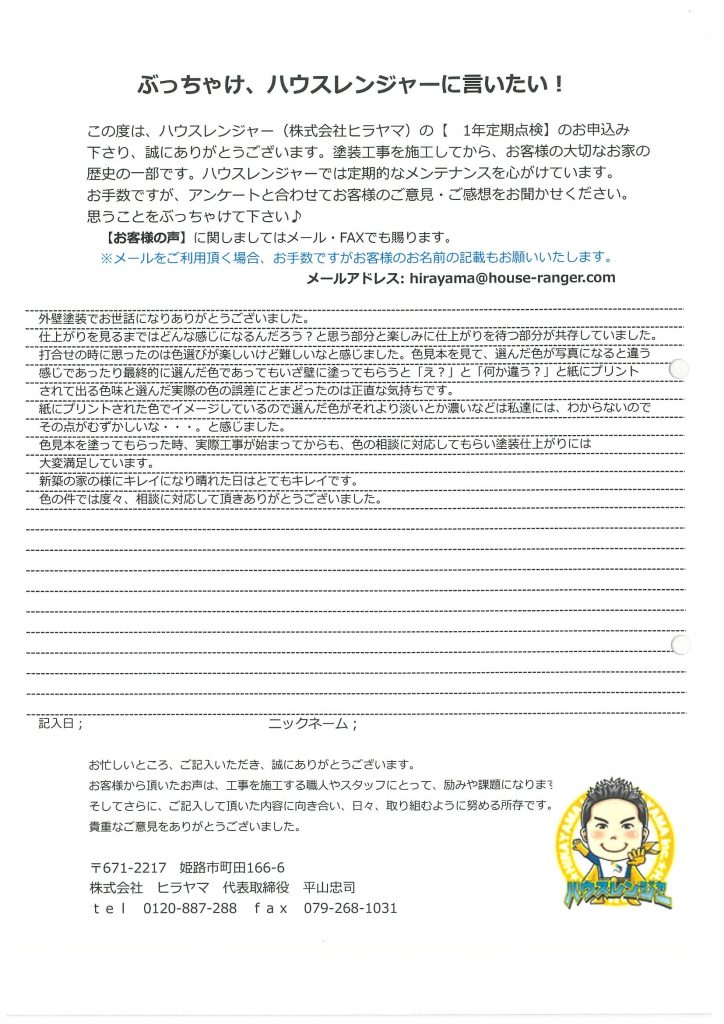 ぶっちゃけ、ハウスレンジャーに言いたい！
この度は、ハウスレンジャー（株式会社ヒラヤマ）の【　1年定期点検】のお申込み
下さり、誠にありがとうございます。塗装工事を施工してから、お客様の大切なお家の
歴史の一部です。ハウスレンジャーでは定期的なメンテナンスを心がけています。
お手数ですが、アンケートと合わせてお客様のご意見・ご感想をお聞かせください。
思うことをぶっちゃけて下さい♪
【お客様の声】に関しましてはメール・FAXでも賜ります。
※メールをご利用頂く場合、お手数ですがお客様のお名前の記載もお願いいたします。
メールアドレス: hirayama@house-ranger.com
外壁塗装でお世話になりありがとうございました。
仕上がりを見るまではどんな感じになるんだろう？と思う部分と楽しみに仕上がりを待つ部分が共存していました。
打合せの時に思ったのは色選びが楽しいけど難しいなと感じました。色見本を見て、選んだ色が写真になると違う
感じであったり最終的に選んだ色であってもいざ壁に塗ってもらうと「え？」と「何か違う？」と紙にプリント
されて出る色味と選んだ実際の色の誤差にとまどったのは正直な気持ちです。
紙にプリントされた色でイメージしているので選んだ色がそれより淡いとか濃いなどは私達には、わからないので
その点がむずかしいな・・・。と感じました。
色見本を塗ってもらった時、実際工事が始まってからも、色の相談に対応してもらい塗装仕上がりには
大変満足しています。
新築の家の様にキレイになり晴れた日はとてもキレイです。
色の件では度々、相談に対応して頂きありがとうございました。
記入日；　ニックネーム；
お忙しいところ、ご記入いただき、誠にありがとうございます。
お客様から頂いたお声は、工事を施工する職人やスタッフにとって、励みや課題になります
そしてさらに、ご記入して頂いた内容に向き合い、日々、取り組むように努める所存です。
貴重なご意見をありがとうございました。
〒671-2217　姫路市町田166-6
株式会社　ヒラヤマ　代表取締役　平山忠司
ｔｅｌ　0120-887-288　ｆａｘ　079-268-1031
ハウスレンジャー